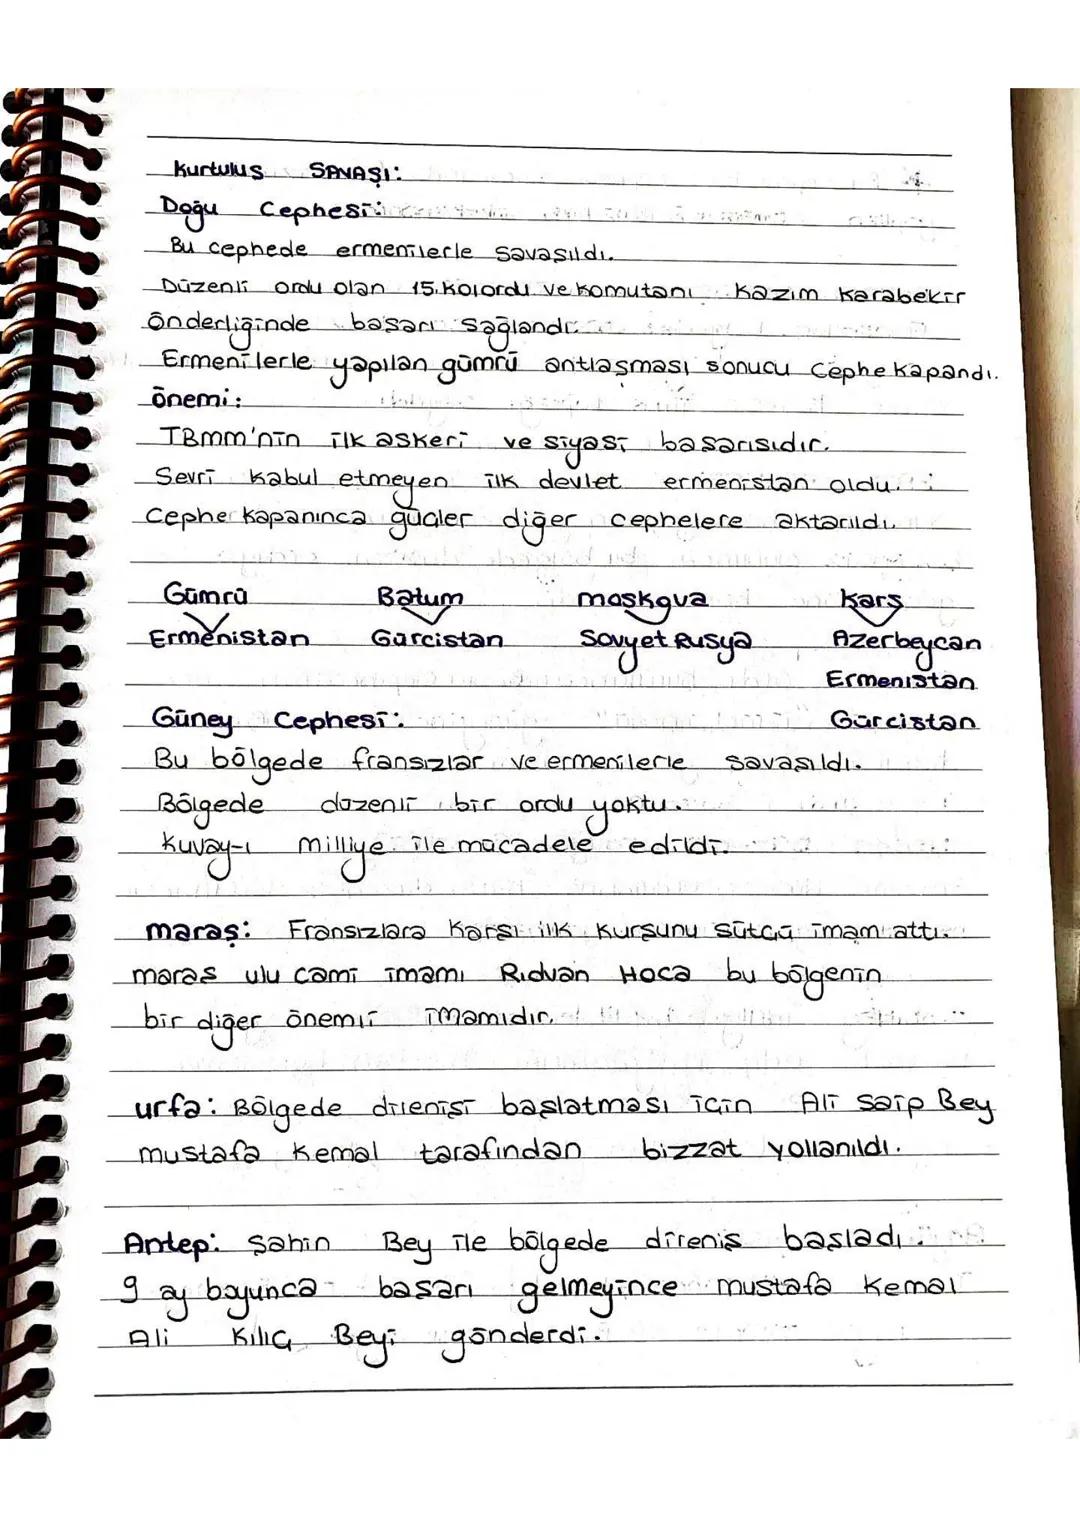 Kurtuluş SAVAŞI:
Doğu Cephesi:
Bu cephede ermenilerle savaşıldı.
Düzenli ordu olan 15.kolordu ve komutanı Kazım Karabekir
önderliğinde başarı sağlandı.
Ermenilerle yapılan gümrü antlaşması sonucu cephe kapandı.
önemi:
TBmm'nin ilk askeri ve siyasi başarısıdır.
Sevri kabul etmeyen ilk devlet ermenistan oldu.
Cephe kapanınca güçler diğer cephelere aktarıldı.
Gümrü Batum moskova Kars
Ermenistan Gürcistan Sovyet Rusya Azerbeycan
Ermenistan
Güney Cephesi: Gürcistan
Bu bölgede fransızlar ve ermenilerle savaşıldı.
Bölgede düzenli bir ordu yoktu.
Kuvay-ı milliye ile mücadele edildi.
maraş: Fransızlara karşı ilk kurşunu sütçü imam attı.
maraş ulu cami imamı Rıdvan Hoca bu bölgenin
bir diğer önemli imamıdır.
urfa: Bölgede direnişi başlatması için Ali Saip Bey
mustafa Kemal tarafından bizzat yollanıldı.
Antep: Şahin Bey ile bölgede direniş başladı.
9 ay boyunca başarı gelmeyince mustafa Kemal
Ali Kılıç Beyi gönderdi.